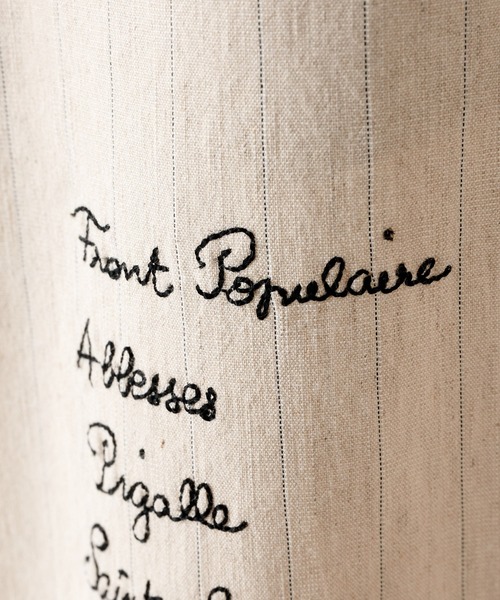 Front Populaire
Abbesses
Pigalle
Saint